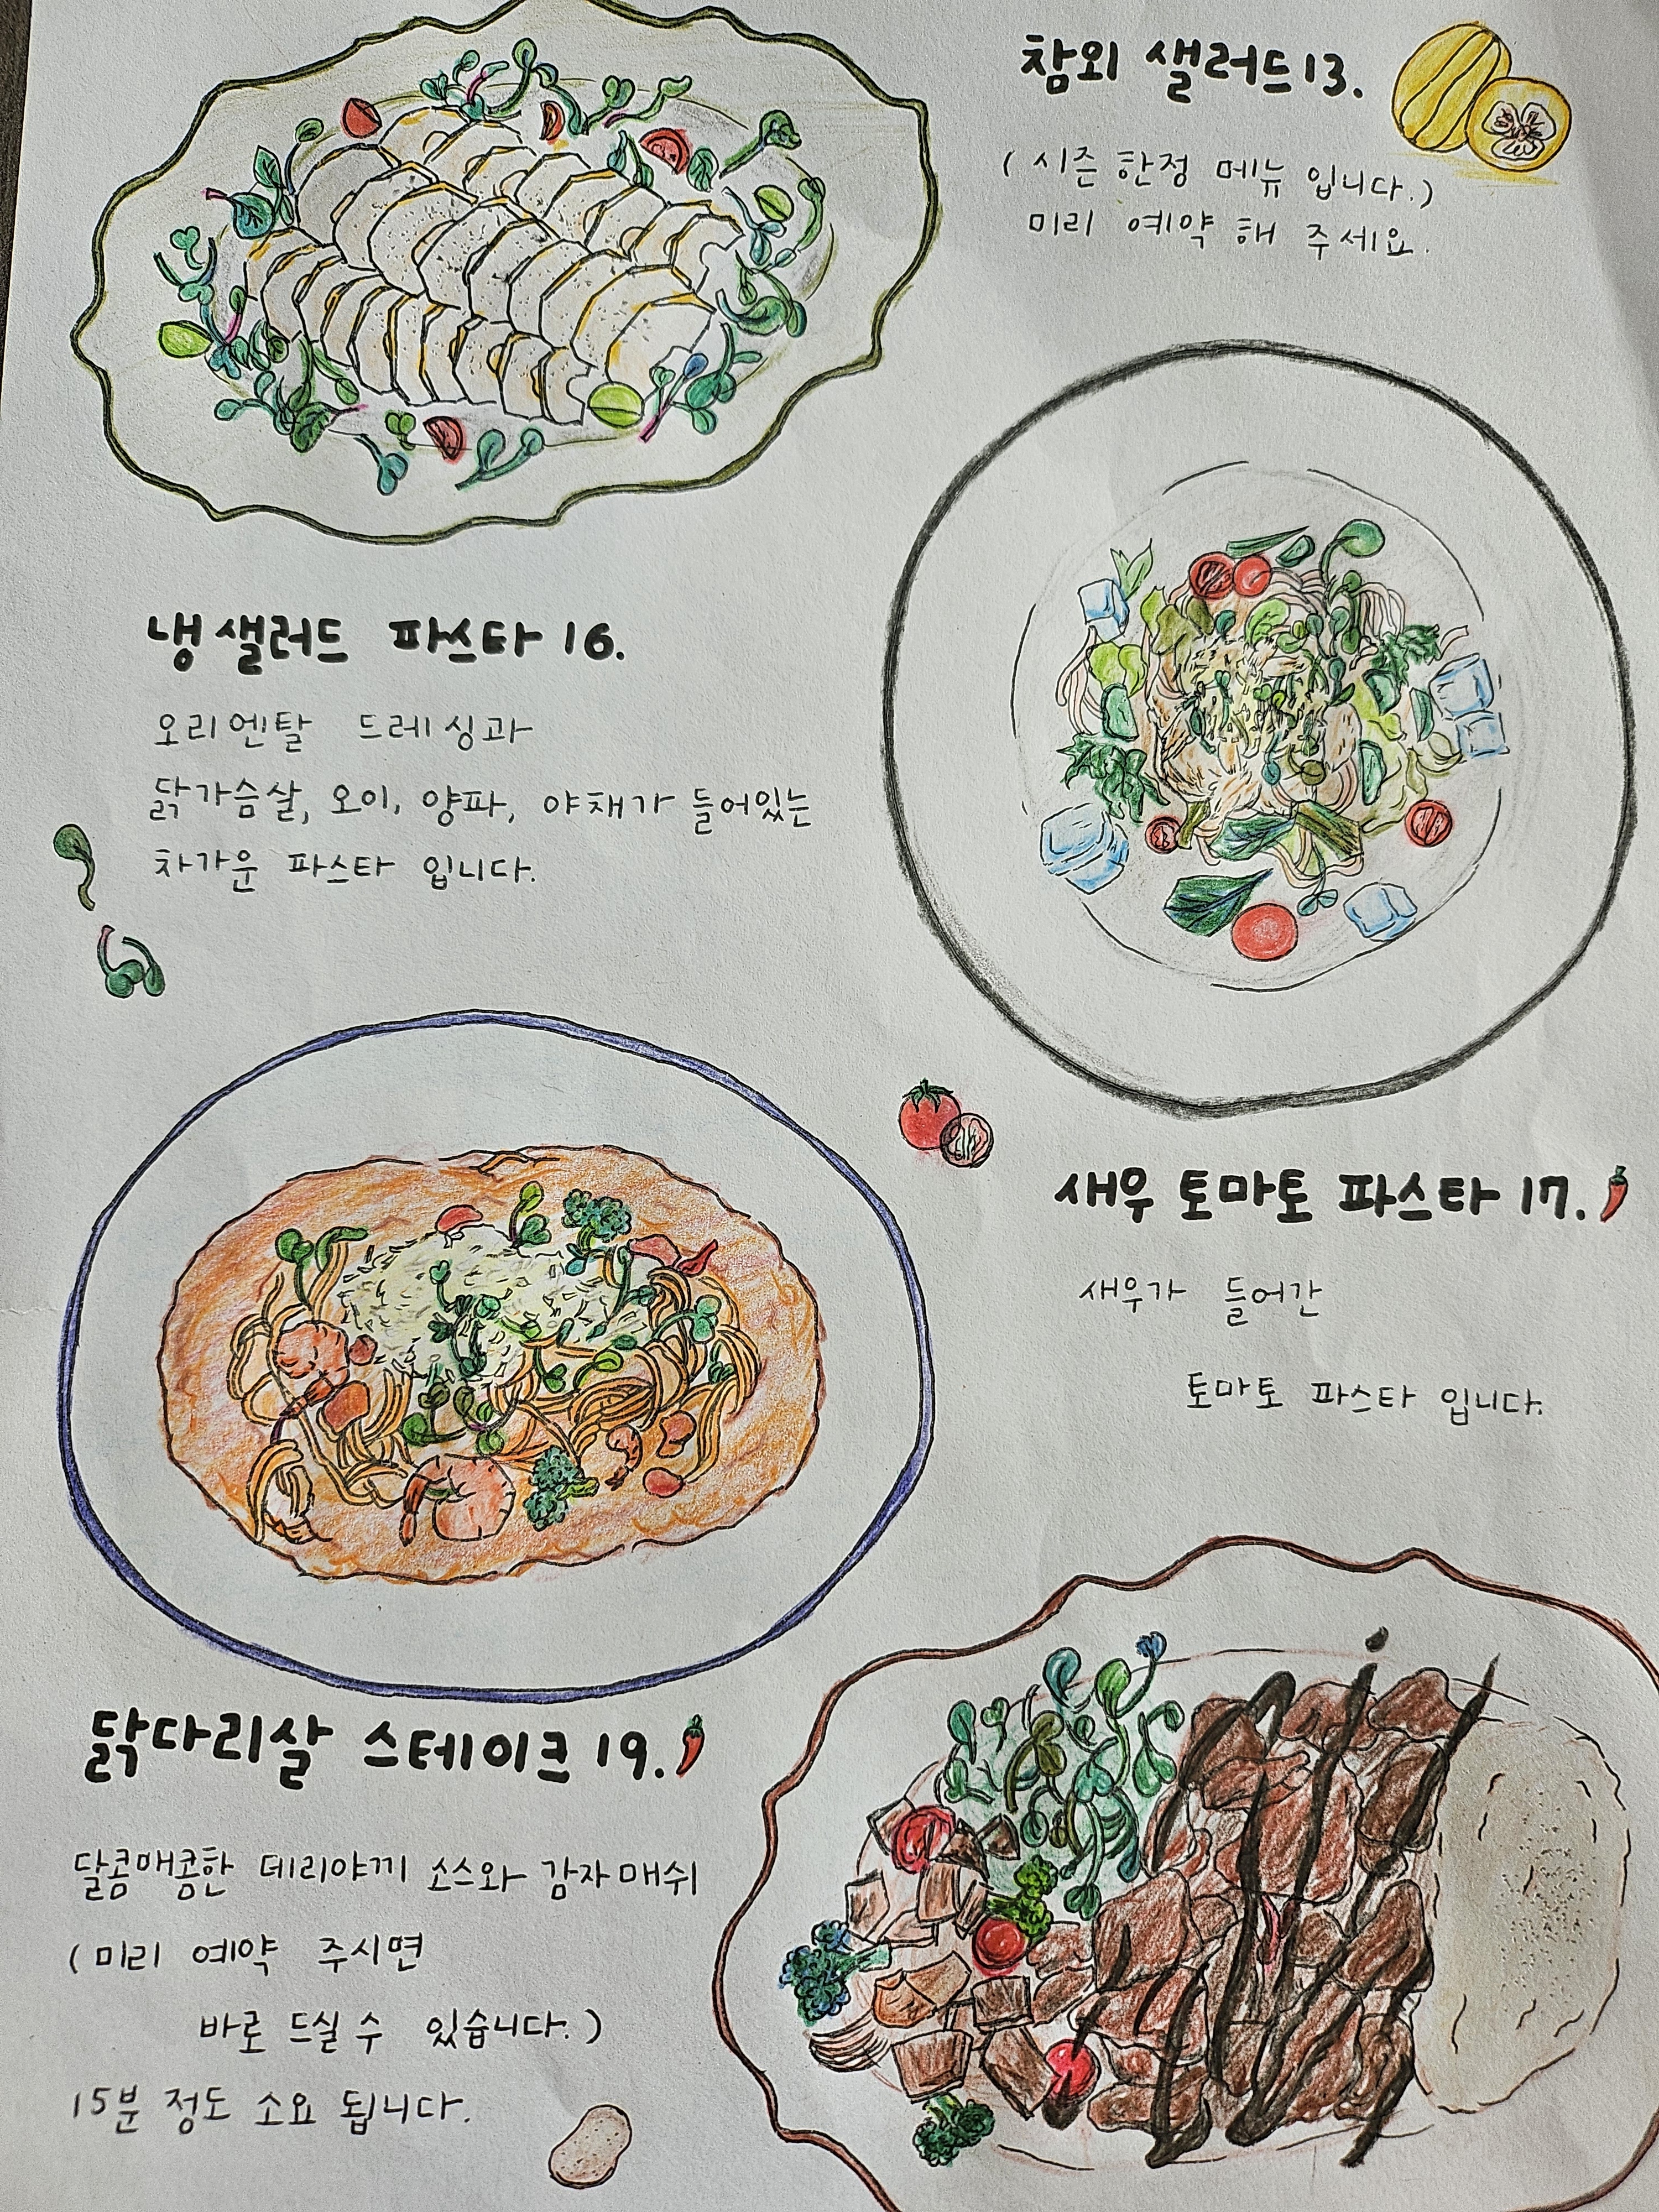 참외 샐러드 13.
( 시즌 한정 메뉴 입니다.)
미리 예약 해 주세요.
냉샐러드 파스타 16.
오리엔탈 드레싱과
닭가슴살, 오이, 양파, 야채가 들어있는
차가운 파스타 입니다.
새우 토마토 파스타 17.
새우가 들어간
토마토 파스타 입니다.
닭다리살 스테이크 19.
달콤매콤한 데리야끼 소스와 감자매쉬
(미리 예약 주시면
바로 드실 수 있습니다.)
15분 정도 소요 됩니다.